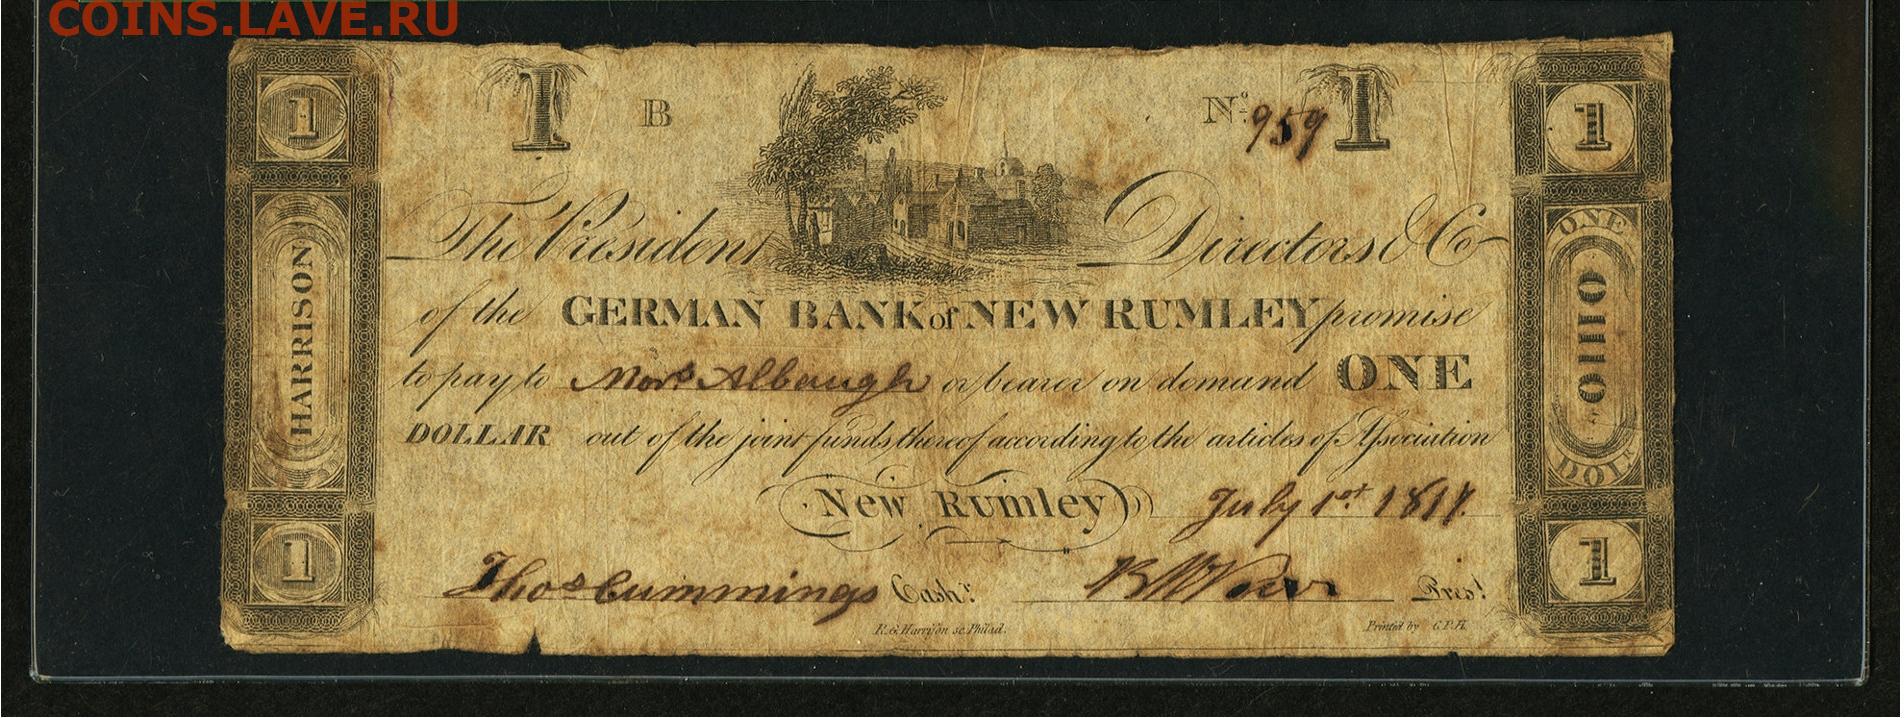 COINS.LAVE.RU
1 1 B No. 959 1 1
The President Directors & Co
of the GERMAN BANK of NEW RUMLEY promise
to pay to Mors. Albaugh or bearer on demand ONE
DOLLAR out of the joint funds thereof according to the articles of Association
New Rumley July 1st 1817.
Thos Cummings Cashr. Prest.
R.G. Harrison sc. Philad. Printed by C.P.H.
HARRISON
1
ONE
OHIO
DOLR
1